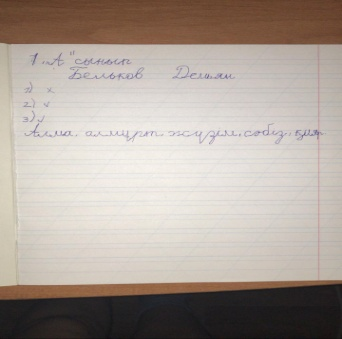 1 "А" сынып
Бельков Демьян
1) х
2) v
3) v
Алма, алмұрт, жүзім, сәбіз, қияр